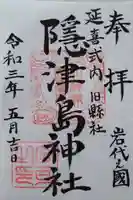 奉拝
岩代之國
延喜式内 旧縣社
隠津島神社
令和三年五月吉日